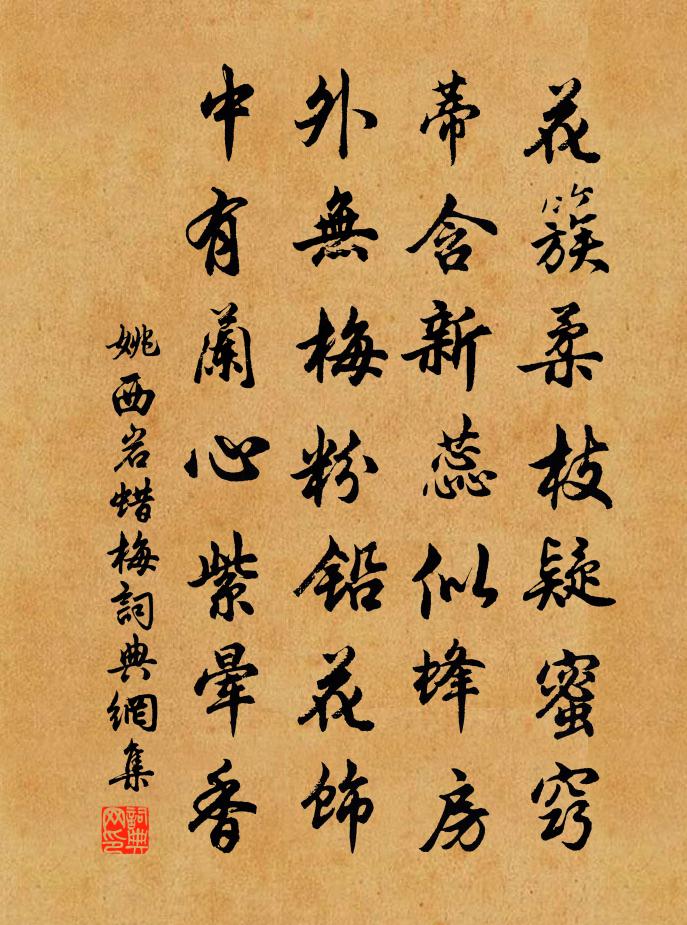 花簇柔枝疑蜜窍
蒂含新蕊似蜂房
外無梅粉铅花饰
中有蘭心紫暈香
姚西岩蜡梅詞典網集
詞典网印